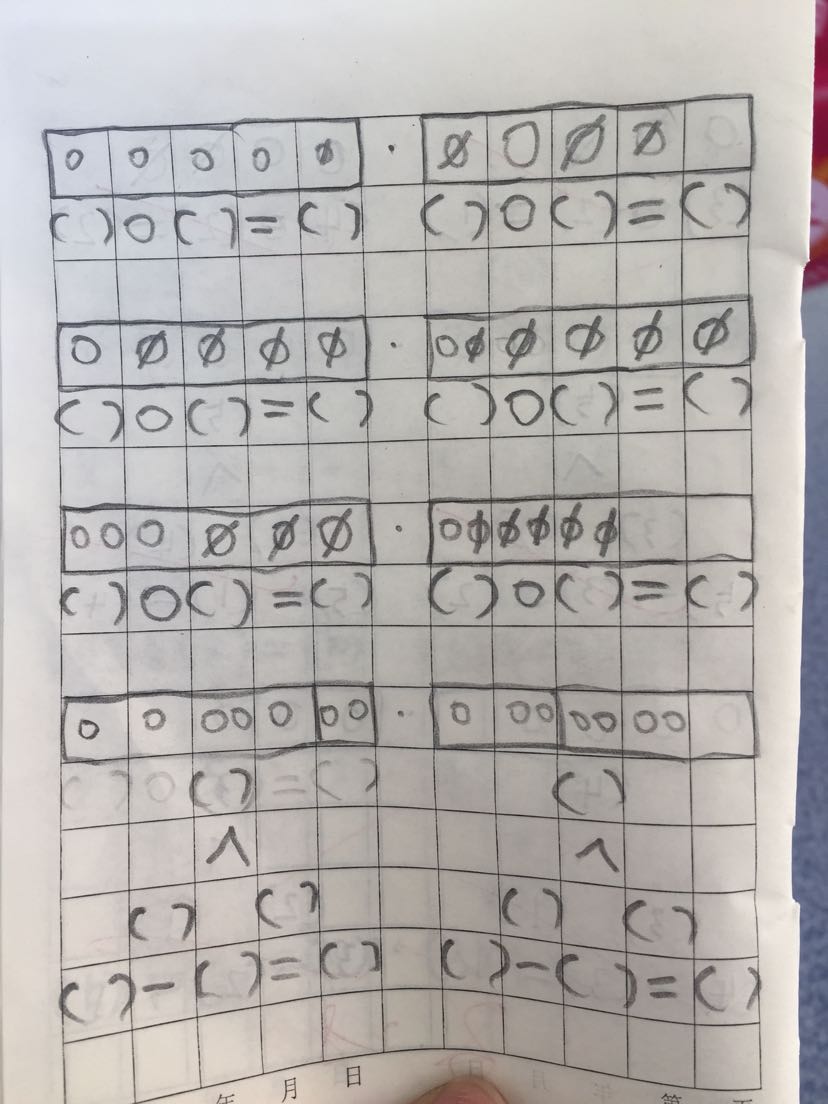 ○ ○ ○ ○ ∅ · ∅ ○ ∅ ∅
( ) ○ ( ) = ( ) ( ) ○ ( ) = ( )
○ ∅ ∅ ∅ ∅ · ○ ∅ ∅ ∅ ∅ ∅
( ) ○ ( ) = ( ) ( ) ○ ( ) = ( )
○ ○ ○ ∅ ∅ ∅ · ○ ∅ ∅ ∅ ∅ ∅
( ) ○ ( ) = ( ) ( ) ○ ( ) = ( )
○ ○ ○ ○ ○ ○ ○ · ○ ○ ○ ○ ○ ○ ○
( ) ( )
∧ ∧
( ) ( ) ( ) ( )
( ) - ( ) = ( ) ( ) - ( ) = ( )
年 月 日 第